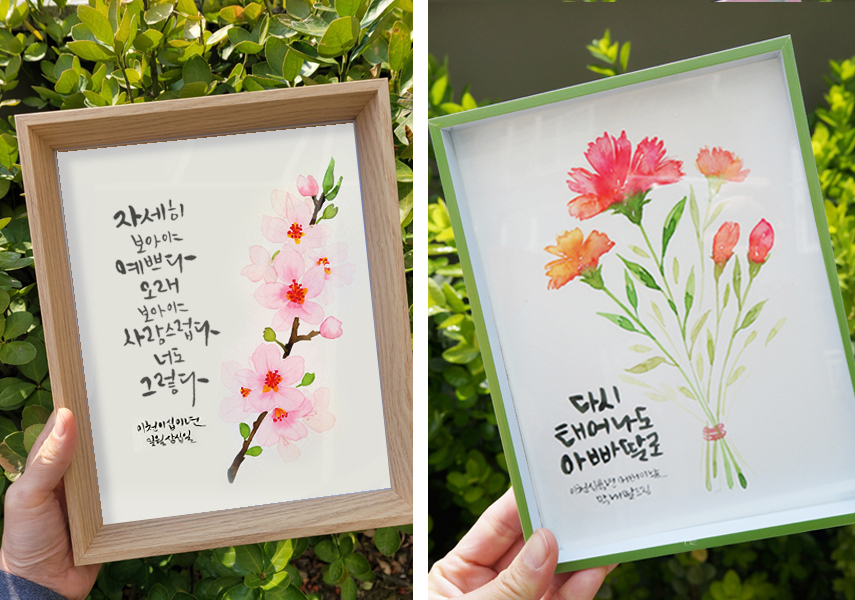 자세히
보아야
예쁘다
오래
보아야
사랑스럽다
너도
그렇다
이천이십이년
일월 삼십일
다시
태어나도
아빠딸로
막내딸드림